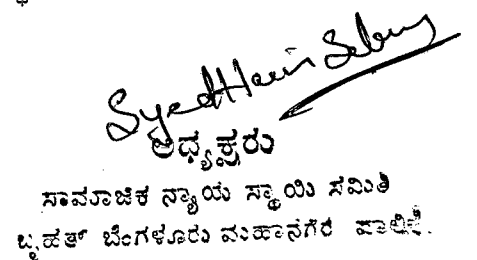 Syed
ಅಧ್ಯಕ್ಷರು
ಸಾಮಾಜಿಕ ನ್ಯಾಯ ಸ್ಥಾಯಿ ಸಮಿತಿ
ಬೃಹತ್ ಬೆಂಗಳೂರು ಮಹಾನಗರ ಪಾಲಿಕೆ.